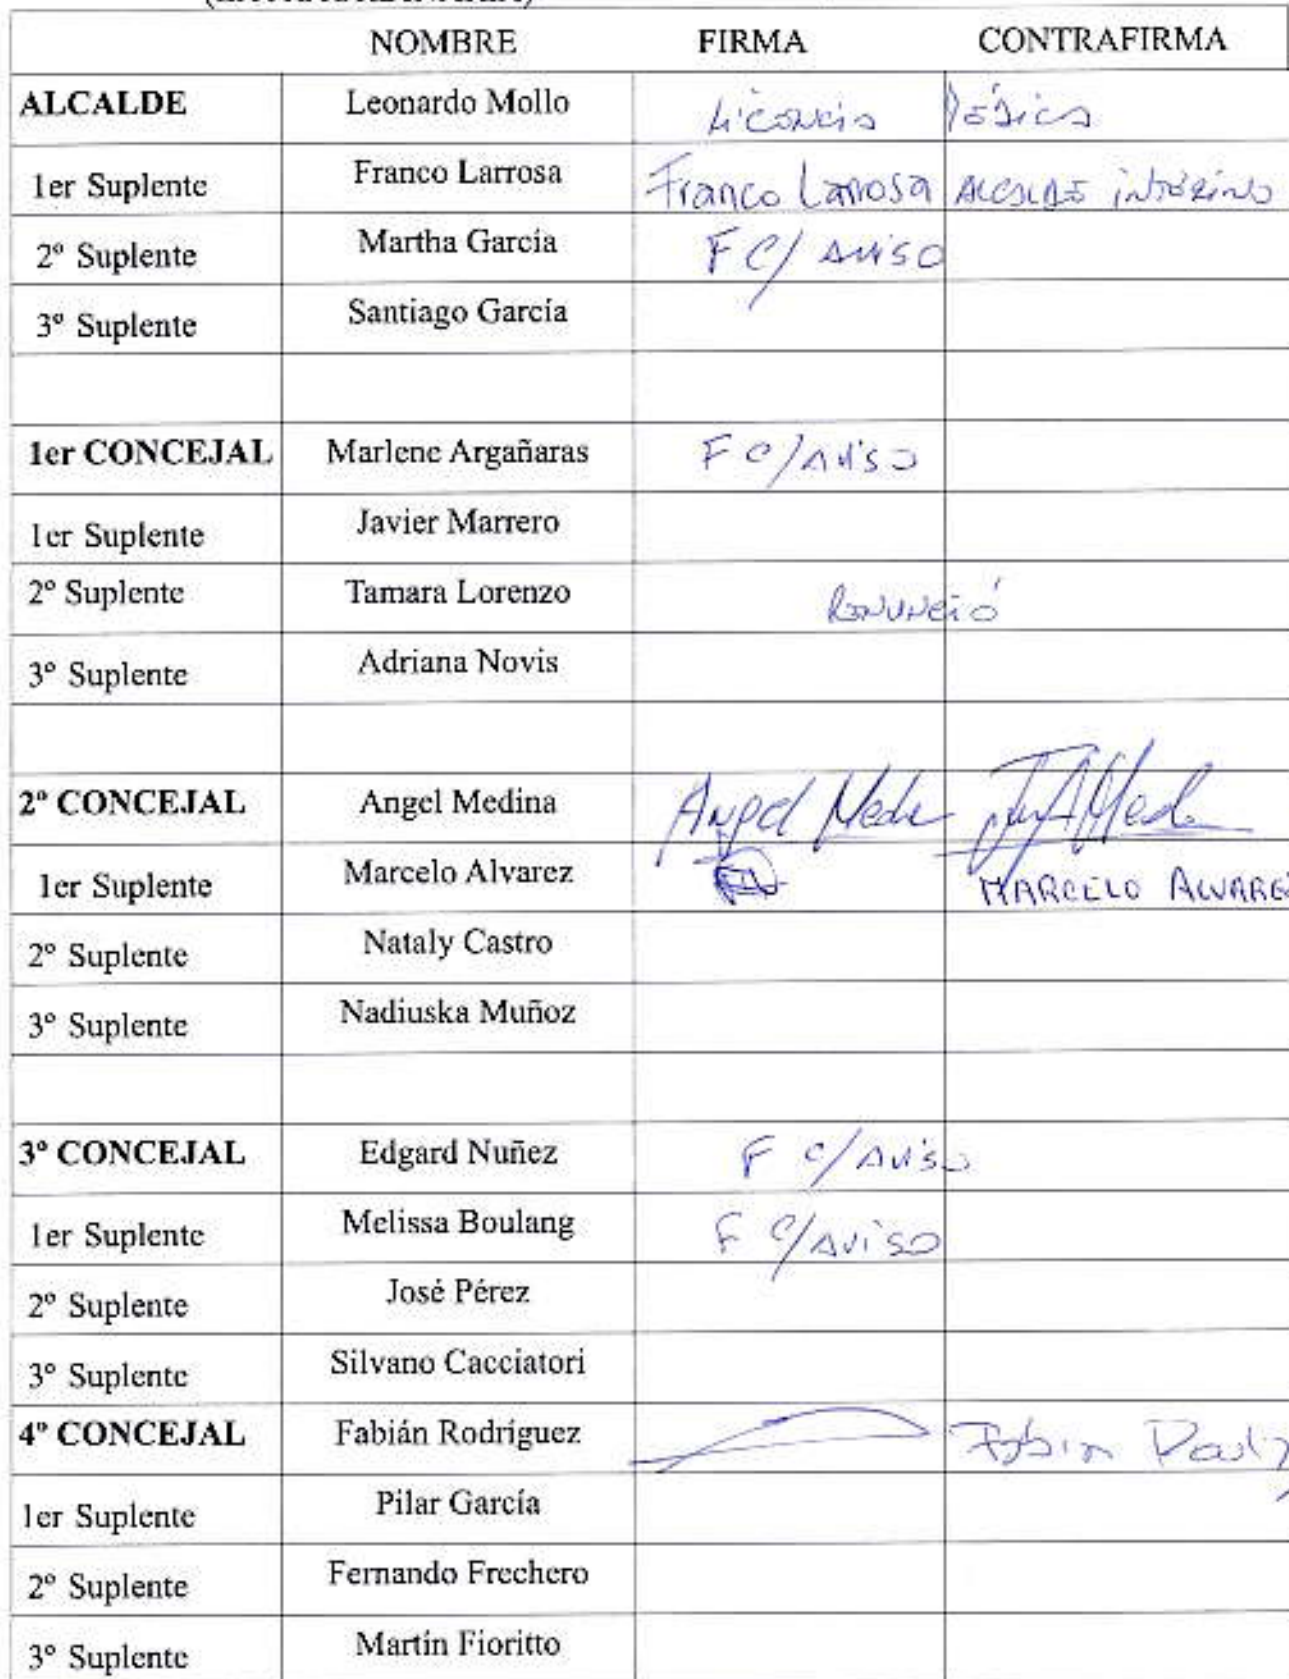 NOMBRE FIRMA CONTRAFIRMA
ALCALDE Leonardo Mollo Licencia Médica
1er Suplente Franco Larrosa Franco Larrosa ALCALDE INTERINO
2º Suplente Martha García F C/ AVISO
3º Suplente Santiago García
1er CONCEJAL Marlene Argañaras F C/AVISO
1er Suplente Javier Marrero
2º Suplente Tamara Lorenzo RENUNCIÓ
3º Suplente Adriana Novis
2º CONCEJAL Angel Medina Angel
1er Suplente Marcelo Alvarez MARCELO ALVAREZ
2º Suplente Nataly Castro
3º Suplente Nadiuska Muñoz
3º CONCEJAL Edgard Nuñez F C/AVISO
1er Suplente Melissa Boulang F C/AVISO
2º Suplente José Pérez
3º Suplente Silvano Cacciatori
4º CONCEJAL Fabián Rodríguez Fabian
1er Suplente Pilar García
2º Suplente Fernando Frechero
3º Suplente Martín Fioritto